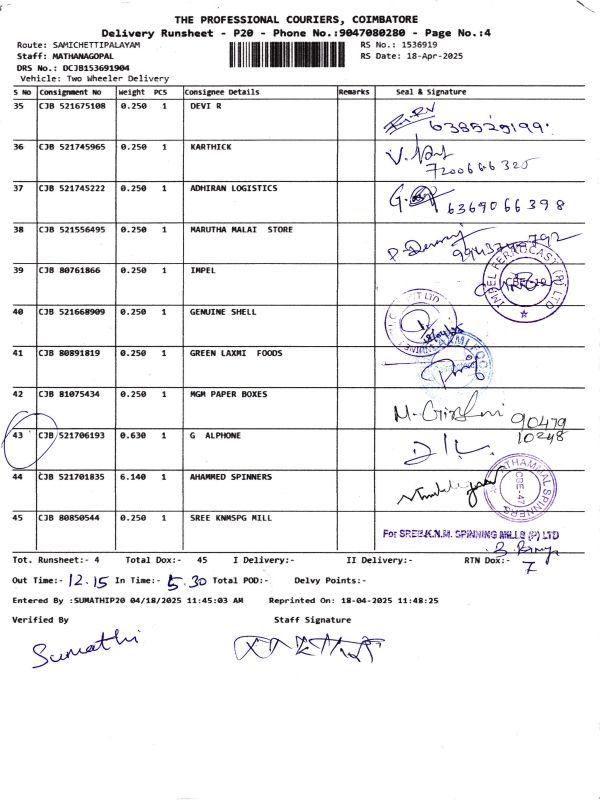 THE PROFESSIONAL COURIERS, COIMBATORE
Delivery Runsheet - P20 - Phone No.:9047080280 - Page No.:4
Route: SAMICHETTIPALAYAM RS No.: 1536919
Staff: MATHANAGOPAL RS Date: 18-Apr-2025
DRS No.: DCJB153691904
Vehicle: Two Wheeler Delivery
S No Consignment No Weight PCS Consignee Details Remarks Seal & Signature
35 CJB 521675108 0.250 1 DEVI R
6385291991
36 CJB 521745965 0.250 1 KARTHICK
7200666325
37 CJB 521745222 0.250 1 ADHIRAN LOGISTICS
6369066398
38 CJB 521556495 0.250 1 MARUTHA MALAI STORE
39 CJB 80761866 0.250 1 IMPEL
IMBEL FERROCAST (P) LTD
40 CJB 521668909 0.250 1 GENUINE SHELL
41 CJB 80891819 0.250 1 GREEN LAXMI FOODS
42 CJB 81075434 0.250 1 MGM PAPER BOXES
90479
10248
43 CJB 521706193 0.630 1 G ALPHONE
44 CJB 521701835 6.140 1 AHAMMED SPINNERS
SPINNERS
CBE-47
45 CJB 80850544 0.250 1 SREE KNMSPG MILL
For SREE.K.N.M. SPINNING MILLS (P) LTD
Tot. Runsheet:- 4 Total Dox:- 45 I Delivery:- II Delivery:- RTN Dox:- 7
Out Time:- 12.15 In Time:- 5.30 Total POD:- Delvy Points:-
Entered By :SUMATHIP20 04/18/2025 11:45:03 AM Reprinted On: 18-04-2025 11:48:25
Verified By Staff Signature
Sumathi